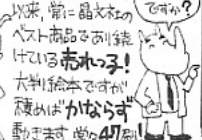 以来、常に晶文社の
ベスト商品であり続
けている売れっ子!
大判絵本ですが
積めばかならず
動きます 堂々47刷!
ですか?